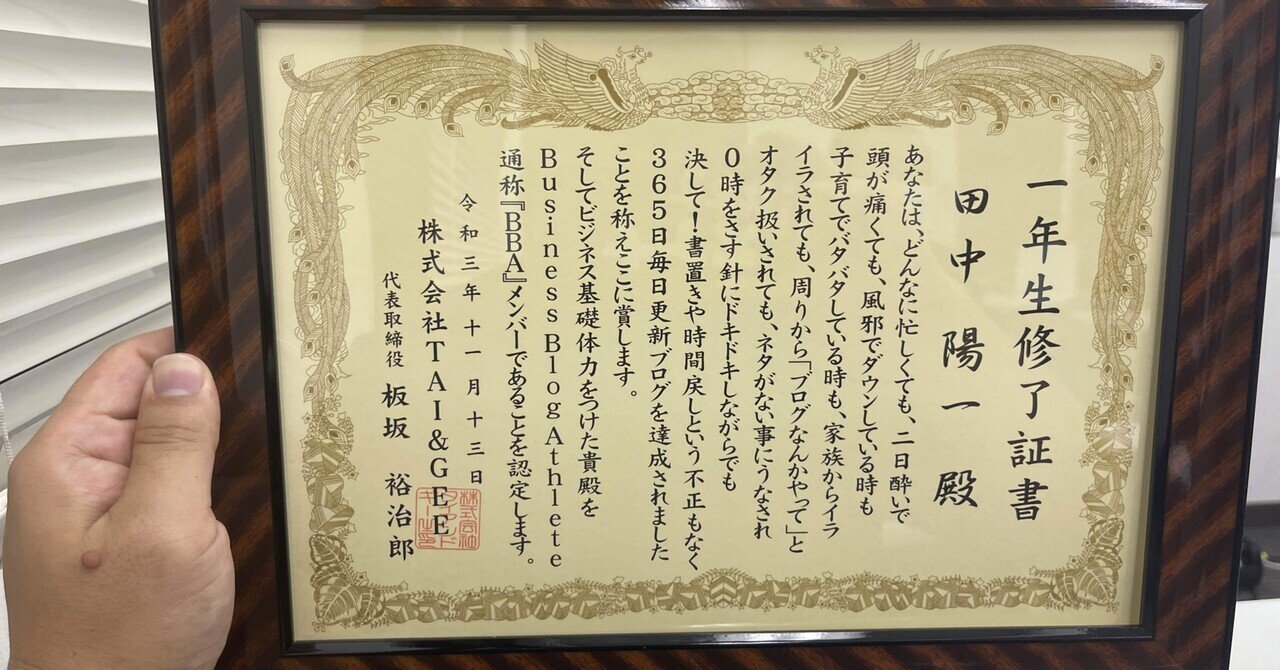 一年生修了証書
田中陽一殿
あなたは、どんなに忙しくても、二日酔いで
頭が痛くても、風邪でダウンしている時も
子育てでバタバタしている時も、家族からイラ
イラされても、周りから「ブログなんかやって」と
オタク扱いされても、ネタがない事にうなされ
0時をさす針にドキドキしながらでも
決して！書置きや時間戻しという不正もなく
365日毎日更新ブログを達成されました
ことを称えここに賞します。
そしてビジネス基礎体力をつけた貴殿を
Business Blog Athlete
通称『BBA』メンバーであることを認定します。
令和三年十一月十三日
株式会社TAI&GEE
代表取締役 板坂 裕治郎